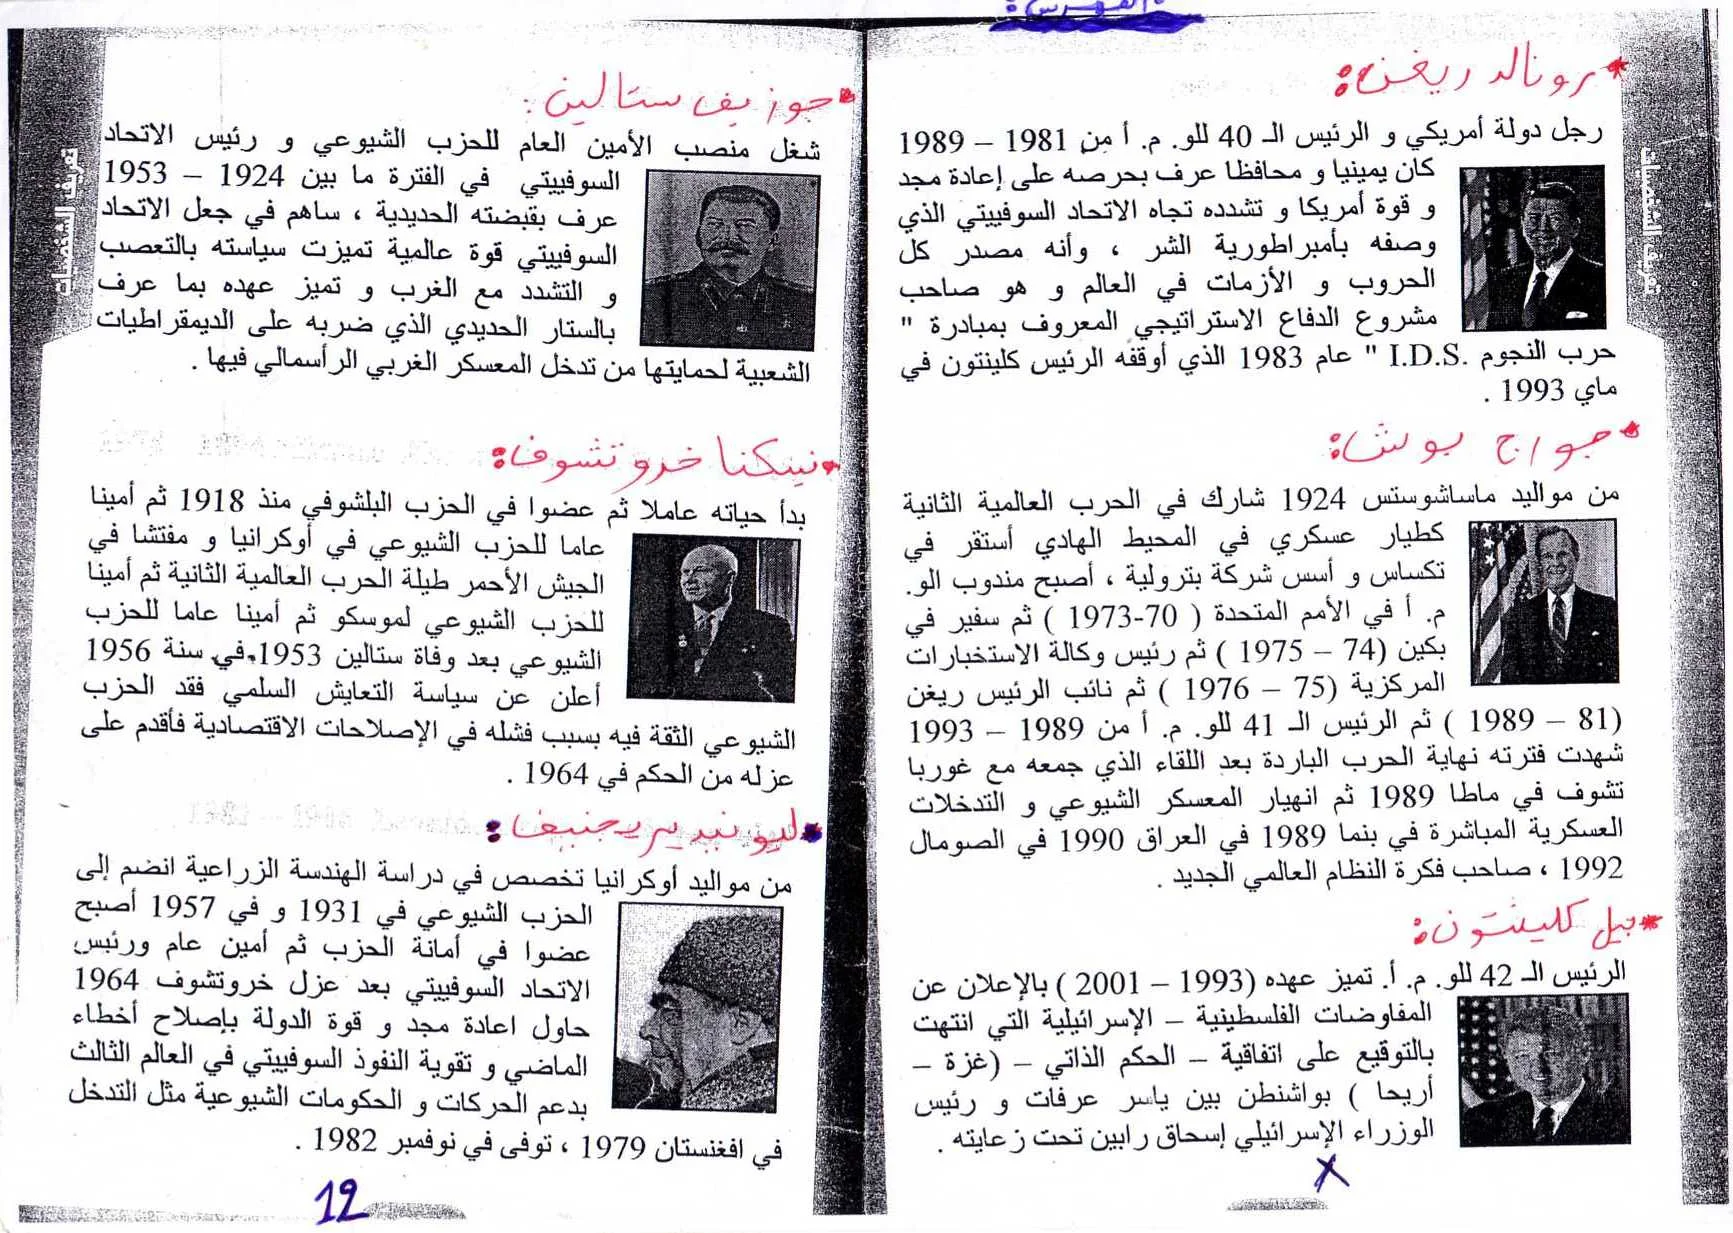 الفهرس:
* رونالد ريغن:
رجل دولة أمريكي و الرئيس الـ 40 للو. م. أ من 1981 – 1989
كان يمينيا و محافظا عرف بحرصه على إعادة مجد
و قوة أمريكا و تشدده تجاه الاتحاد السوفييتي الذي
وصفه بأمبراطورية الشر ، وأنه مصدر كل
الحروب و الأزمات في العالم و هو صاحب
مشروع الدفاع الاستراتيجي المعروف بمبادرة "
حرب النجوم I.D.S. " عام 1983 الذي أوقفه الرئيس كلينتون في
ماي 1993 .
* جواج بوش:
من مواليد ماساشوستس 1924 شارك في الحرب العالمية الثانية
كطيار عسكري في المحيط الهادي أستقر في
تكساس و أسس شركة بترولية ، أصبح مندوب الو.
م. أ في الأمم المتحدة ( 70-1973 ) ثم سفير في
بكين (74 – 1975 ) ثم رئيس وكالة الاستخبارات
المركزية (75 – 1976 ) ثم نائب الرئيس ريغن
(81 – 1989 ) ثم الرئيس الـ 41 للو. م. أ من 1989 – 1993
شهدت فترته نهاية الحرب الباردة بعد اللقاء الذي جمعه مع غوربا
تشوف في ماطا 1989 ثم انهيار المعسكر الشيوعي و التدخلات
العسكرية المباشرة في بنما 1989 في العراق 1990 في الصومال
1992 ، صاحب فكرة النظام العالمي الجديد .
* بيل كلينتون:
الرئيس الـ 42 للو. م. أ. تميز عهده (1993 – 2001 ) بالإعلان عن
المفاوضات الفلسطينية – الإسرائيلية التي انتهت
بالتوقيع على اتفاقية – الحكم الذاتي – (غزة –
أريحا ) بواشنطن بين ياسر عرفات و رئيس
الوزراء الإسرائيلي إسحاق رابين تحت زعايته .
تعريف الشخصيات
* جوزيف ستالين:
شغل منصب الأمين العام للحزب الشيوعي و رئيس الاتحاد
السوفييتي في الفترة ما بين 1924 – 1953
عرف بقبضته الحديدية ، ساهم في جعل الاتحاد
السوفييتي قوة عالمية تميزت سياسته بالتعصب
و التشدد مع الغرب و تميز عهده بما عرف
بالستار الحديدي الذي ضربه على الديمقراطيات
الشعبية لحمايتها من تدخل المعسكر الغربي الرأسمالي فيها .
* نيكتا خروتشوف:
بدأ حياته عاملا ثم عضوا في الحزب البلشوفي منذ 1918 ثم أمينا
عاما للحزب الشيوعي في أوكرانيا و مفتشا في
الجيش الأحمر طيلة الحرب العالمية الثانية ثم أمينا
للحزب الشيوعي لموسكو ثم أمينا عاما للحزب
الشيوعي بعد وفاة ستالين 1953.في سنة 1956
أعلن عن سياسة التعايش السلمي فقد الحزب
الشيوعي الثقة فيه بسبب فشله في الإصلاحات الاقتصادية فأقدم على
عزله من الحكم في 1964 .
* ليونيد بريجنيف:
من مواليد أوكرانيا تخصص في دراسة الهندسة الزراعية انضم إلى
الحزب الشيوعي في 1931 و في 1957 أصبح
عضوا في أمانة الحزب ثم أمين عام ورئيس
الاتحاد السوفييتي بعد عزل خروتشوف 1964
حاول اعادة مجد و قوة الدولة بإصلاح أخطاء
الماضي و تقوية النفوذ السوفييتي في العالم الثالث
بدعم الحركات و الحكومات الشيوعية مثل التدخل
في افغنستان 1979 ، توفى في نوفمبر 1982 .
12
تعريف الشخصيات